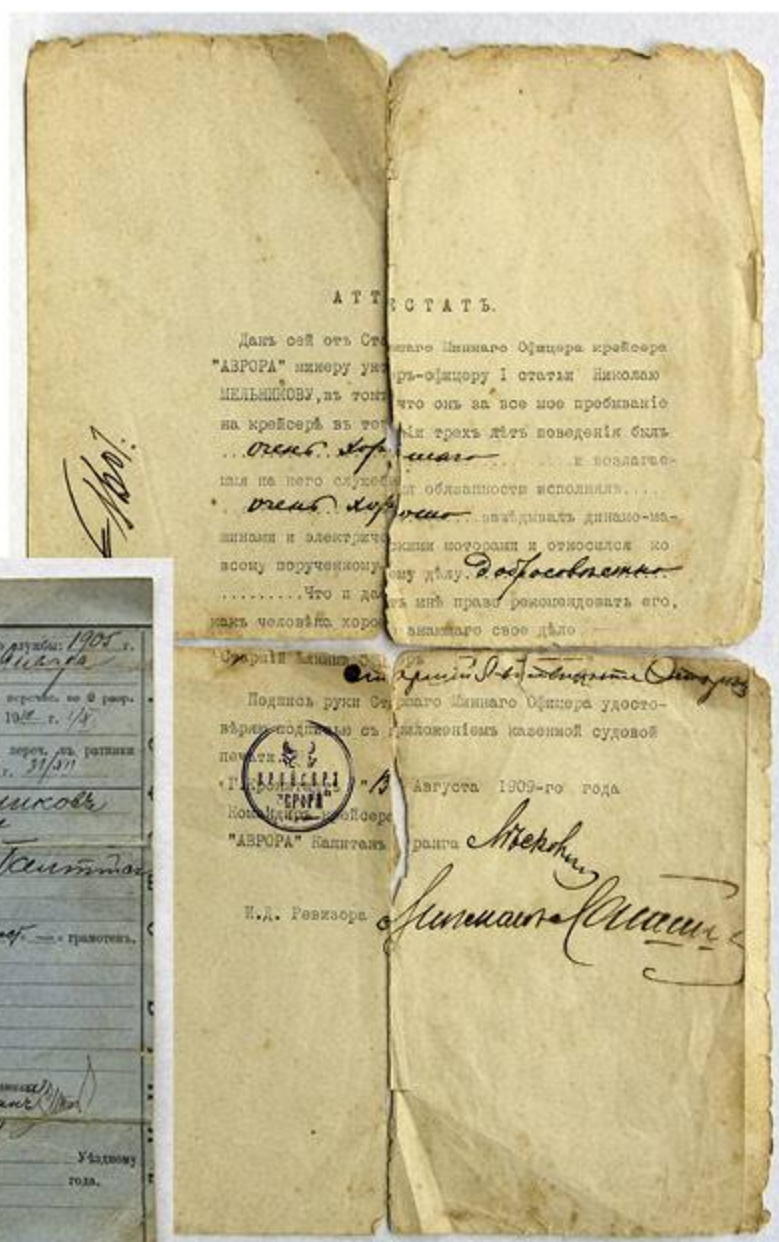 АТТЕСТАТЪ.
Данъ сей отъ Старшаго Миннаго Офицера крейсера
"АВРОРА" минеру унтеръ-офицеру I статьи Николаю
МЕЛЬНИКОВУ, въ томъ что онъ за все мое пребываніе
на крейсерѣ въ теченіи трехъ лѣтъ поведенія былъ
...очень хорошаго ... и возлагае-
мыя на него служебныя обязанности исполнялъ....
очень хорошо...завѣдывалъ динамо-ма-
шинами и электрическими моторами и относился ко
всему порученному ему дѣлу. Добросовѣстно
.........Что и даетъ мнѣ право рекомендовать его,
какъ человѣка хорошо знающаго свое дѣло
Старшій Минный Офицеръ
Подпись руки Старшаго Миннаго Офицера удосто-
вѣряю подписью съ приложеніемъ казенной судовой
печати.
"13" Августа 1909-го года
Командиръ крейсера
"АВРОРА" Капитанъ ранга
И.Д. Ревизора Мичманъ
службы: 1905 г.
перечис. въ
г. 1/X
переч. въ ратники
г. 31/XII
никовъ
грамотенъ.
Уѣздному
года.